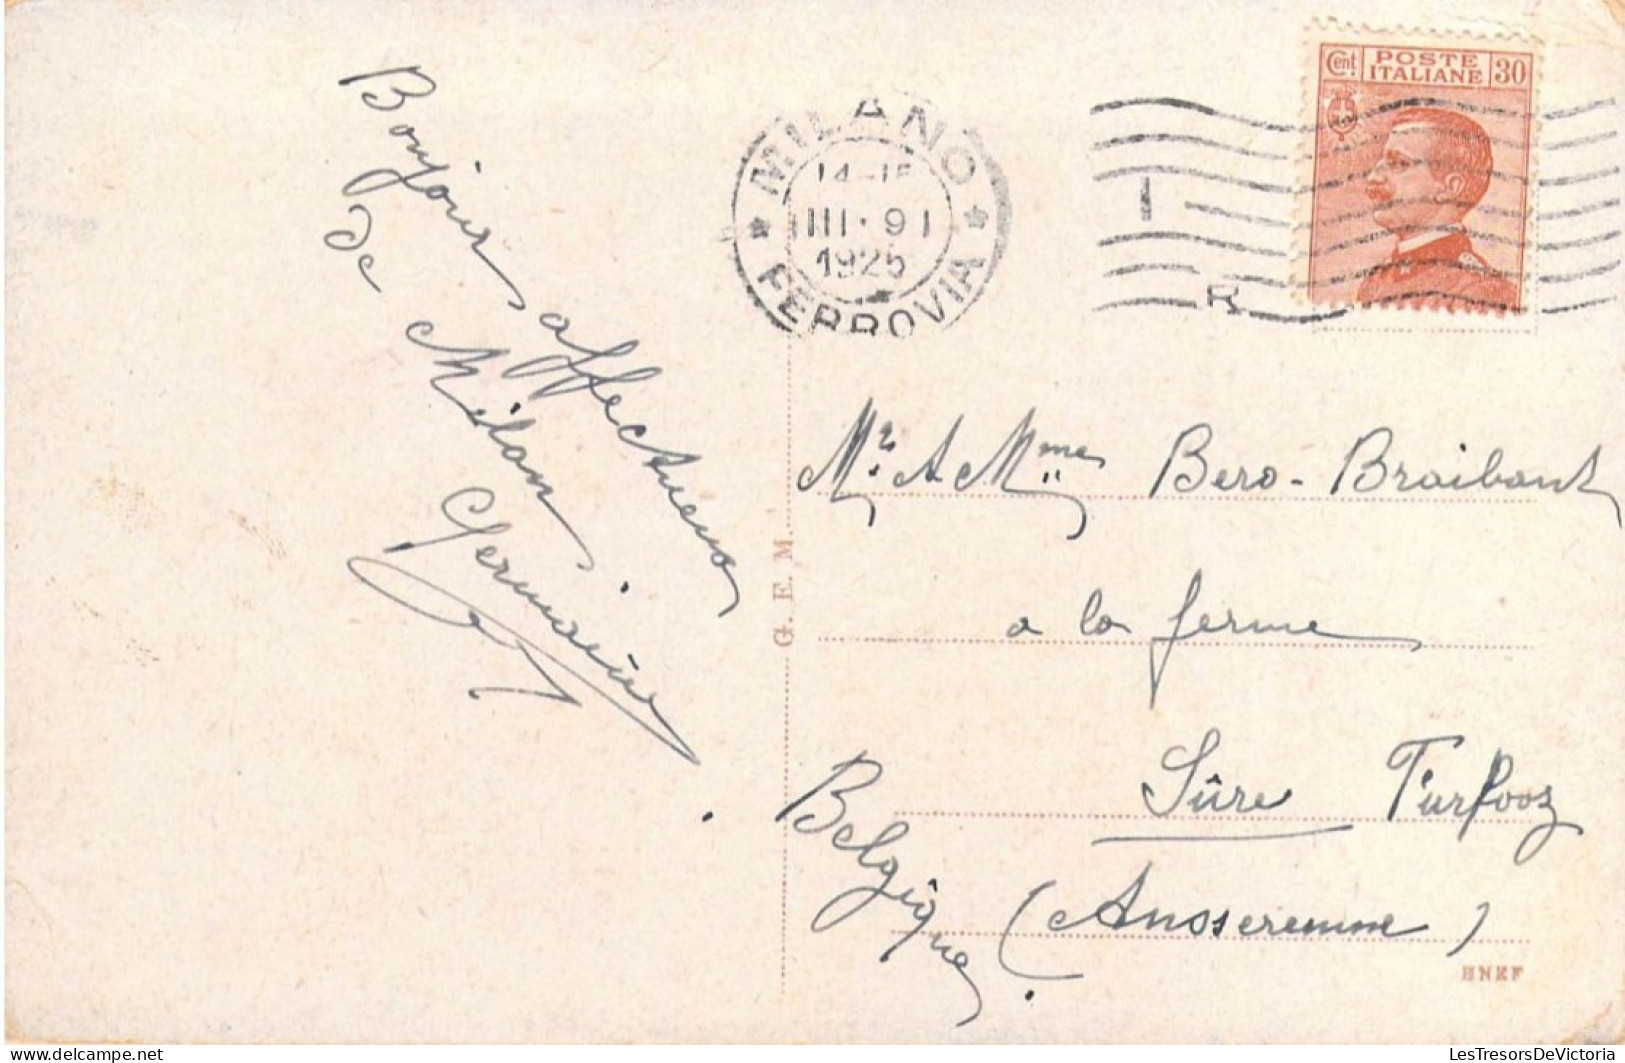 Bonjour affectueux
de Milan.
Germaine
MILANO
14-15
III·91
1925
FERROVIA
Cent. POSTE ITALIANE 30
Mr. A Mme Bero-Braibant
a la ferme
Sûre Furfooz
(Anseremme)
Belgique.
G. E. M.
HNKF
LesTresorsDeVictoria